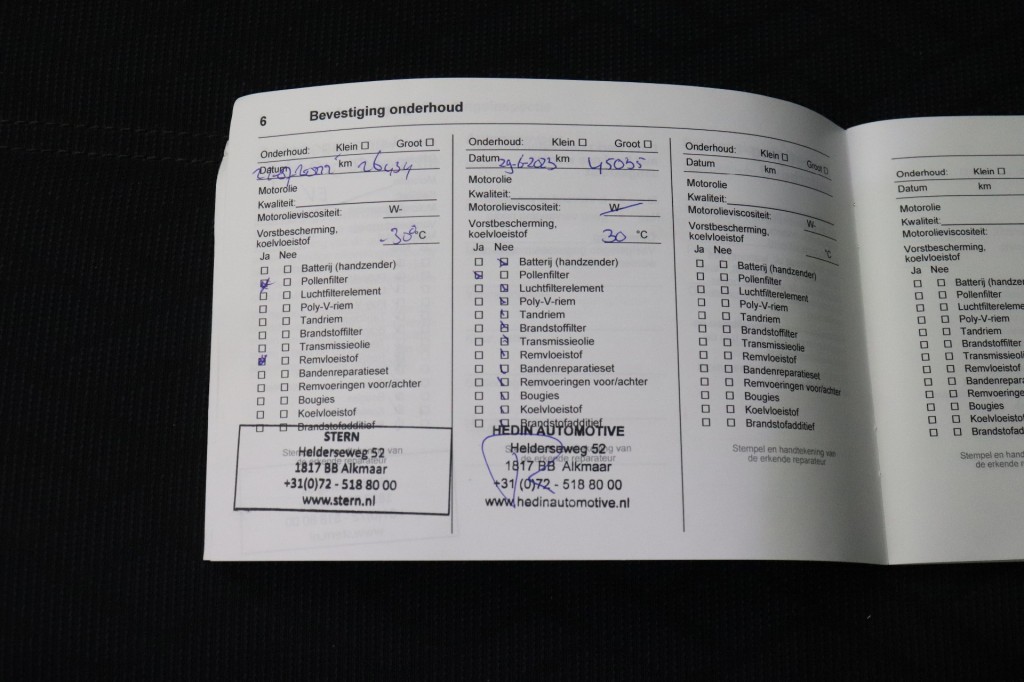 6 Bevestiging onderhoud
Onderhoud: Klein ☐ Groot ☐
Datum km 26434
Motorolie
Kwaliteit:
Motorolieviscositeit: W-
Vorstbescherming,
koelvloeistof -30 °C
Ja Nee
Batterij (handzender)
Pollenfilter
Luchtfilterelement
Poly-V-riem
Tandriem
Brandstoffilter
Transmissieolie
Remvloeistof
Bandenreparatieset
Remvoeringen voor/achter
Bougies
Koelvloeistof
Brandstofadditief
STERN
Helderseweg 52
1817 BB Alkmaar
+31(0)72 - 518 80 00
www.stern.nl
Onderhoud: Klein ☐ Groot ☐
Datum 29-6-2023 km 45035
Motorolie
Kwaliteit:
Motorolieviscositeit: W-
Vorstbescherming,
koelvloeistof 30 °C
Ja Nee
Batterij (handzender)
Pollenfilter
Luchtfilterelement
Poly-V-riem
Tandriem
Brandstoffilter
Transmissieolie
Remvloeistof
Bandenreparatieset
Remvoeringen voor/achter
Bougies
Koelvloeistof
Brandstofadditief
HEDIN AUTOMOTIVE
Helderseweg 52
1817 BB Alkmaar
+31 (0)72 - 518 80 00
www.hedinautomotive.nl
Onderhoud: Klein ☐ Groot ☐
Datum km
Motorolie
Kwaliteit:
Motorolieviscositeit: W-
Vorstbescherming,
koelvloeistof °C
Ja Nee
Batterij (handzender)
Pollenfilter
Luchtfilterelement
Poly-V-riem
Tandriem
Brandstoffilter
Transmissieolie
Remvloeistof
Bandenreparatieset
Remvoeringen voor/achter
Bougies
Koelvloeistof
Brandstofadditief
Stempel en handtekening van
de erkende reparateur
Onderhoud: Klein ☐
Datum km
Motorolie
Kwaliteit:
Motorolieviscositeit:
Vorstbescherming,
koelvloeistof
Ja Nee
Batterij (handze
Pollenfilter
Luchtfiltereleme
Poly-V-riem
Tandriem
Brandstoffilter
Transmissieoli
Remvloeistof
Bandenrepara
Remvoeringe
Bougies
Koelvloeisto
Brandstofad
Stempel en handt
de erkende r